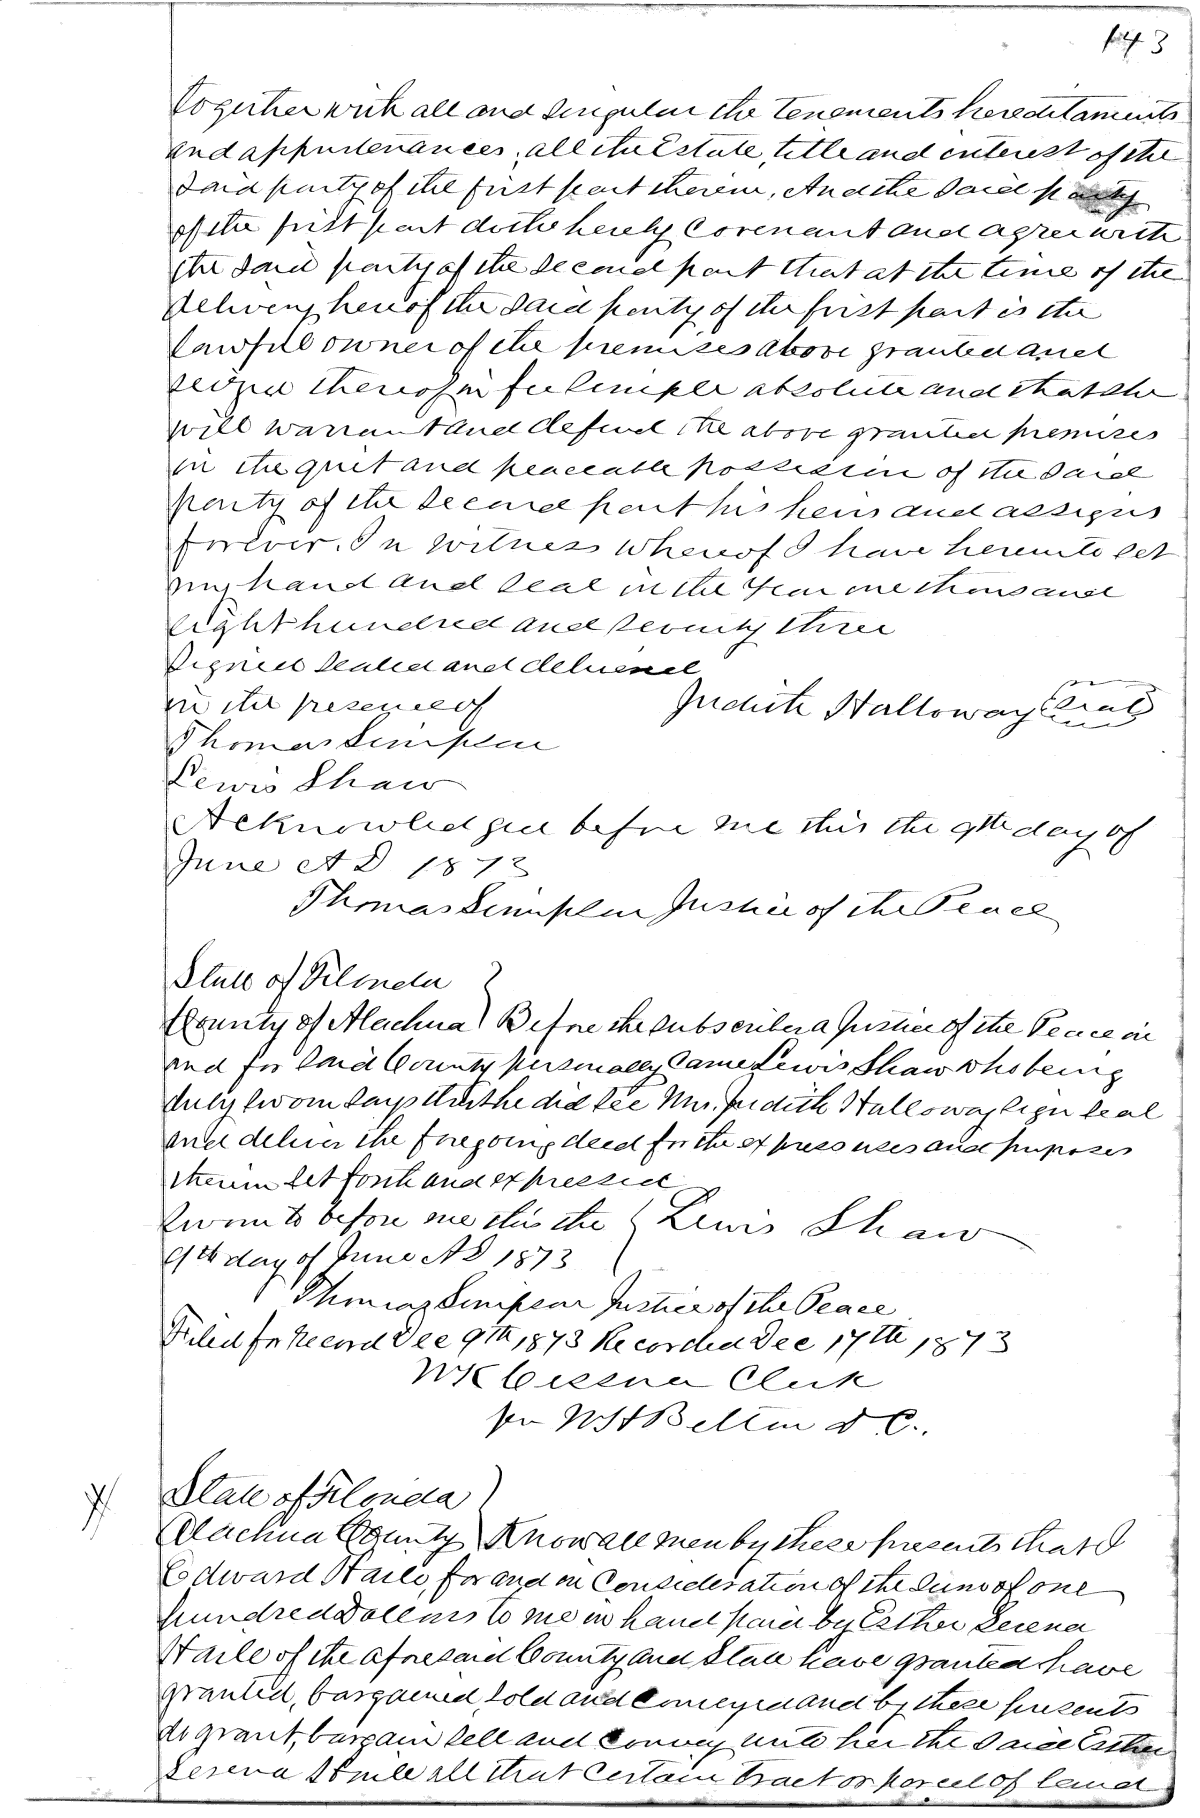 143
together with all and singular the tenements hereditaments
and appurtenances, all the Estate, title and interest of the
said party of the first part therein, And the said party
of the first part doth hereby Covenant and agree with
the said party of the second part that at the time of the
delivery hereof the said party of the first part is the
lawful owner of the premises above granted and
seized thereof in fee simple absolute and that she
will warrant and defend the above granted premises
in the quiet and peaceable possession of the said
party of the second part his heirs and assigns
forever. In witness whereof I have hereunto set
my hand and seal in the Year one thousand
eight hundred and seventy three
Signed sealed and delivered
in the presence of Judith Halloway Seal
Thomas Simpson
Lewis Shaw
Acknowledged before me this the 9th day of
June A D 1873
Thomas Simpson Justice of the Peace
State of Florida
County of Alachua } Before the subscriber a Justice of the Peace in
and for said County personally Came Lewis Shaw who being
duly sworn says that he did see Mrs. Judith Halloway sign seal
and deliver the foregoing deed for the express uses and purposes
therein set forth and expressed
Sworn to before me this the { Lewis Shaw
9th day of June A D 1873
Thomas Simpson Justice of the Peace
Filed for Record Dec 9th 1873 Recorded Dec 17th 1873
W K Cessna Clerk
per W H Belton D C.
State of Florida }
Alachua County } Know all men by these presents that I
Edward Haile, for and in Consideration of the sum of one
hundred Dollars to me in hand paid by Esther Serena
Haile of the aforesaid County and State have granted have
granted, bargained, sold and conveyed and by these presents
do grant, bargain sell and convey unto her the said Esther
Serena Haile all that certain tract or parcel of land